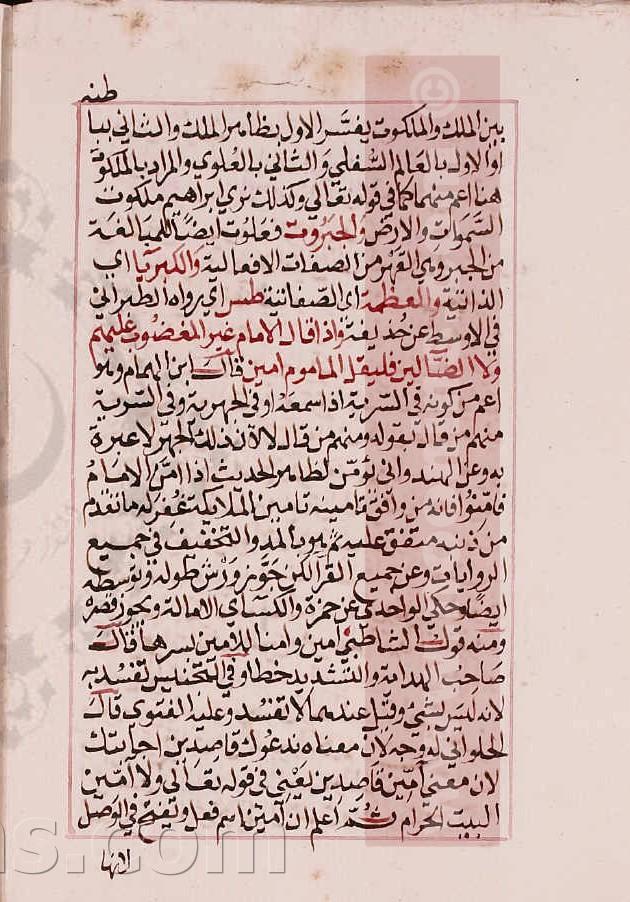 طنه
بين الملك والملكوت يفسّر الاول بظاهر الملك والثاني ببا
او الاول بالعالم السّفلي والثاني بالعلوي والمراد بالملكوت
هنا اعم منهما كما في قوله تعالى وكذلك نري ابراهيم ملكوت
السّموات والارض والجبروت فعلوت ايضا للمبالغة
من الجبر وهي القهر من الصفات الافعالية والكبريا اي
الذاتية والعظمة اي الصّفاتية طس اي رواه الطبراني
في الاوسط عن حذيفة واذا قال الامام غير المغضوب عليهم
ولا الضّالين فليقل الماموم امين قال ابن الهمام وهو
اعم من كونه في السّرية اذا سمعه او في الجهرية وفي السّرية
منهم من قال يقوله ومنهم من قال لا لان ذلك الجهر لا عبرة
به وعن الهندواني يؤمّن لظاهر الحديث اذا امّن الامام
فامّنوا فانه من وافق تامينه تامين الملايكة غفر له ما تقدم
من ذنبه متفق عليه ثم هو بالمد والتخفيف في جميع
الروايات وعن جميع القرا لكن جوّز ورش طوله وتوسطه
ايضا وحكي الواحدي عن حمزة والكساي الامالة ويجوز قصره
ومنه قول الشاطبي امين وامنا للامين بسرها قال
صاحب الهداية والتشديد خطا وفي التجنيس تفسد به
لانه ليس بشيء وقيل عندهما لا تفسد وعليه الفتوي قال
الحلواني له وجه لان معناه ندعوك قاصدين اجابتك
لان معني آمّين قاصدين يعني في قوله تعالي ولا آمّين
البيت الحرام ثمّ اعلم ان آمين اسم فعل ويفتح في الوصل
لانها
ns.com